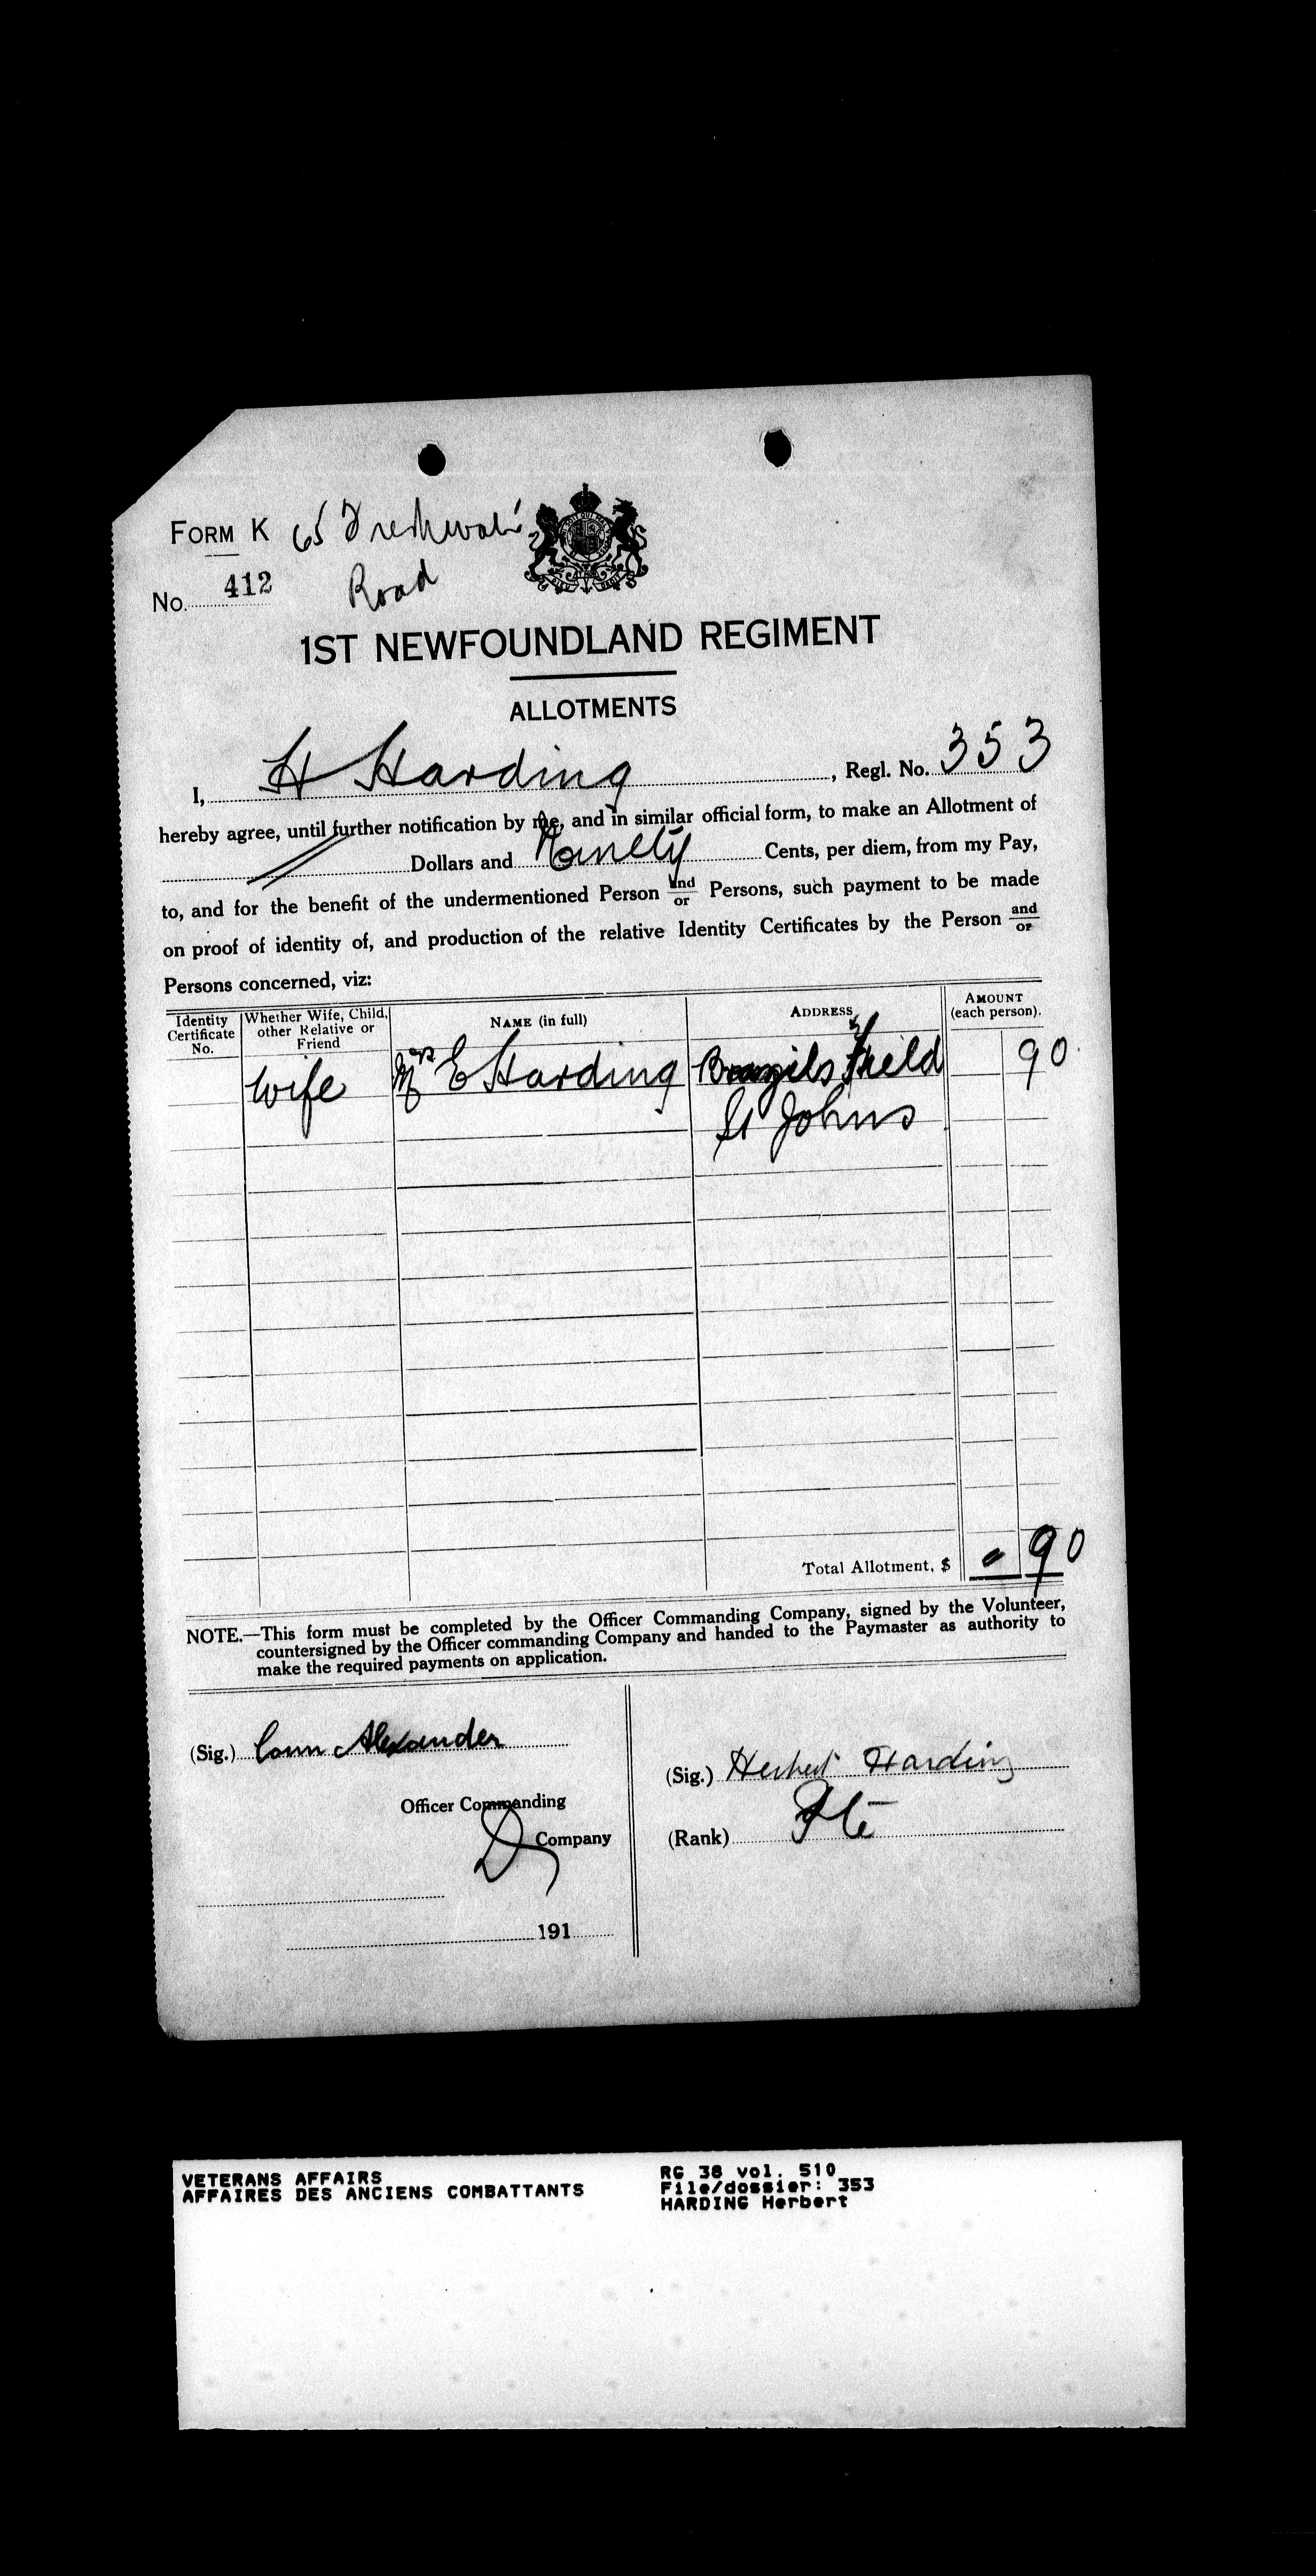 FORM K 65 Freshwater
No. 412 Road
1ST NEWFOUNDLAND REGIMENT
ALLOTMENTS
I, H Harding, Regl. No. 353
hereby agree, until further notification by me, and in similar official form, to make an Allotment of
Dollars and Ninety Cents, per diem, from my Pay,
to, and for the benefit of the undermentioned Person and/or Persons, such payment to be made
on proof of identity of, and production of the relative Identity Certificates by the Person and/or
Persons concerned, viz:
Identity Certificate No. Whether Wife, Child, other Relative or Friend NAME (in full) ADDRESS AMOUNT (each person).
Wife Mrs E Harding Brazils Field 90
St Johns
Total Allotment, $ 90
NOTE.—This form must be completed by the Officer Commanding Company, signed by the Volunteer,
countersigned by the Officer commanding Company and handed to the Paymaster as authority to
make the required payments on application.
(Sig.) Conn Alexander
Officer Commanding
D Company
191
(Sig.) Herbert Harding
(Rank) Pte
VETERANS AFFAIRS
AFFAIRES DES ANCIENS COMBATTANTS
RG 38 vol. 510
File/dossier: 353
HARDING Herbert